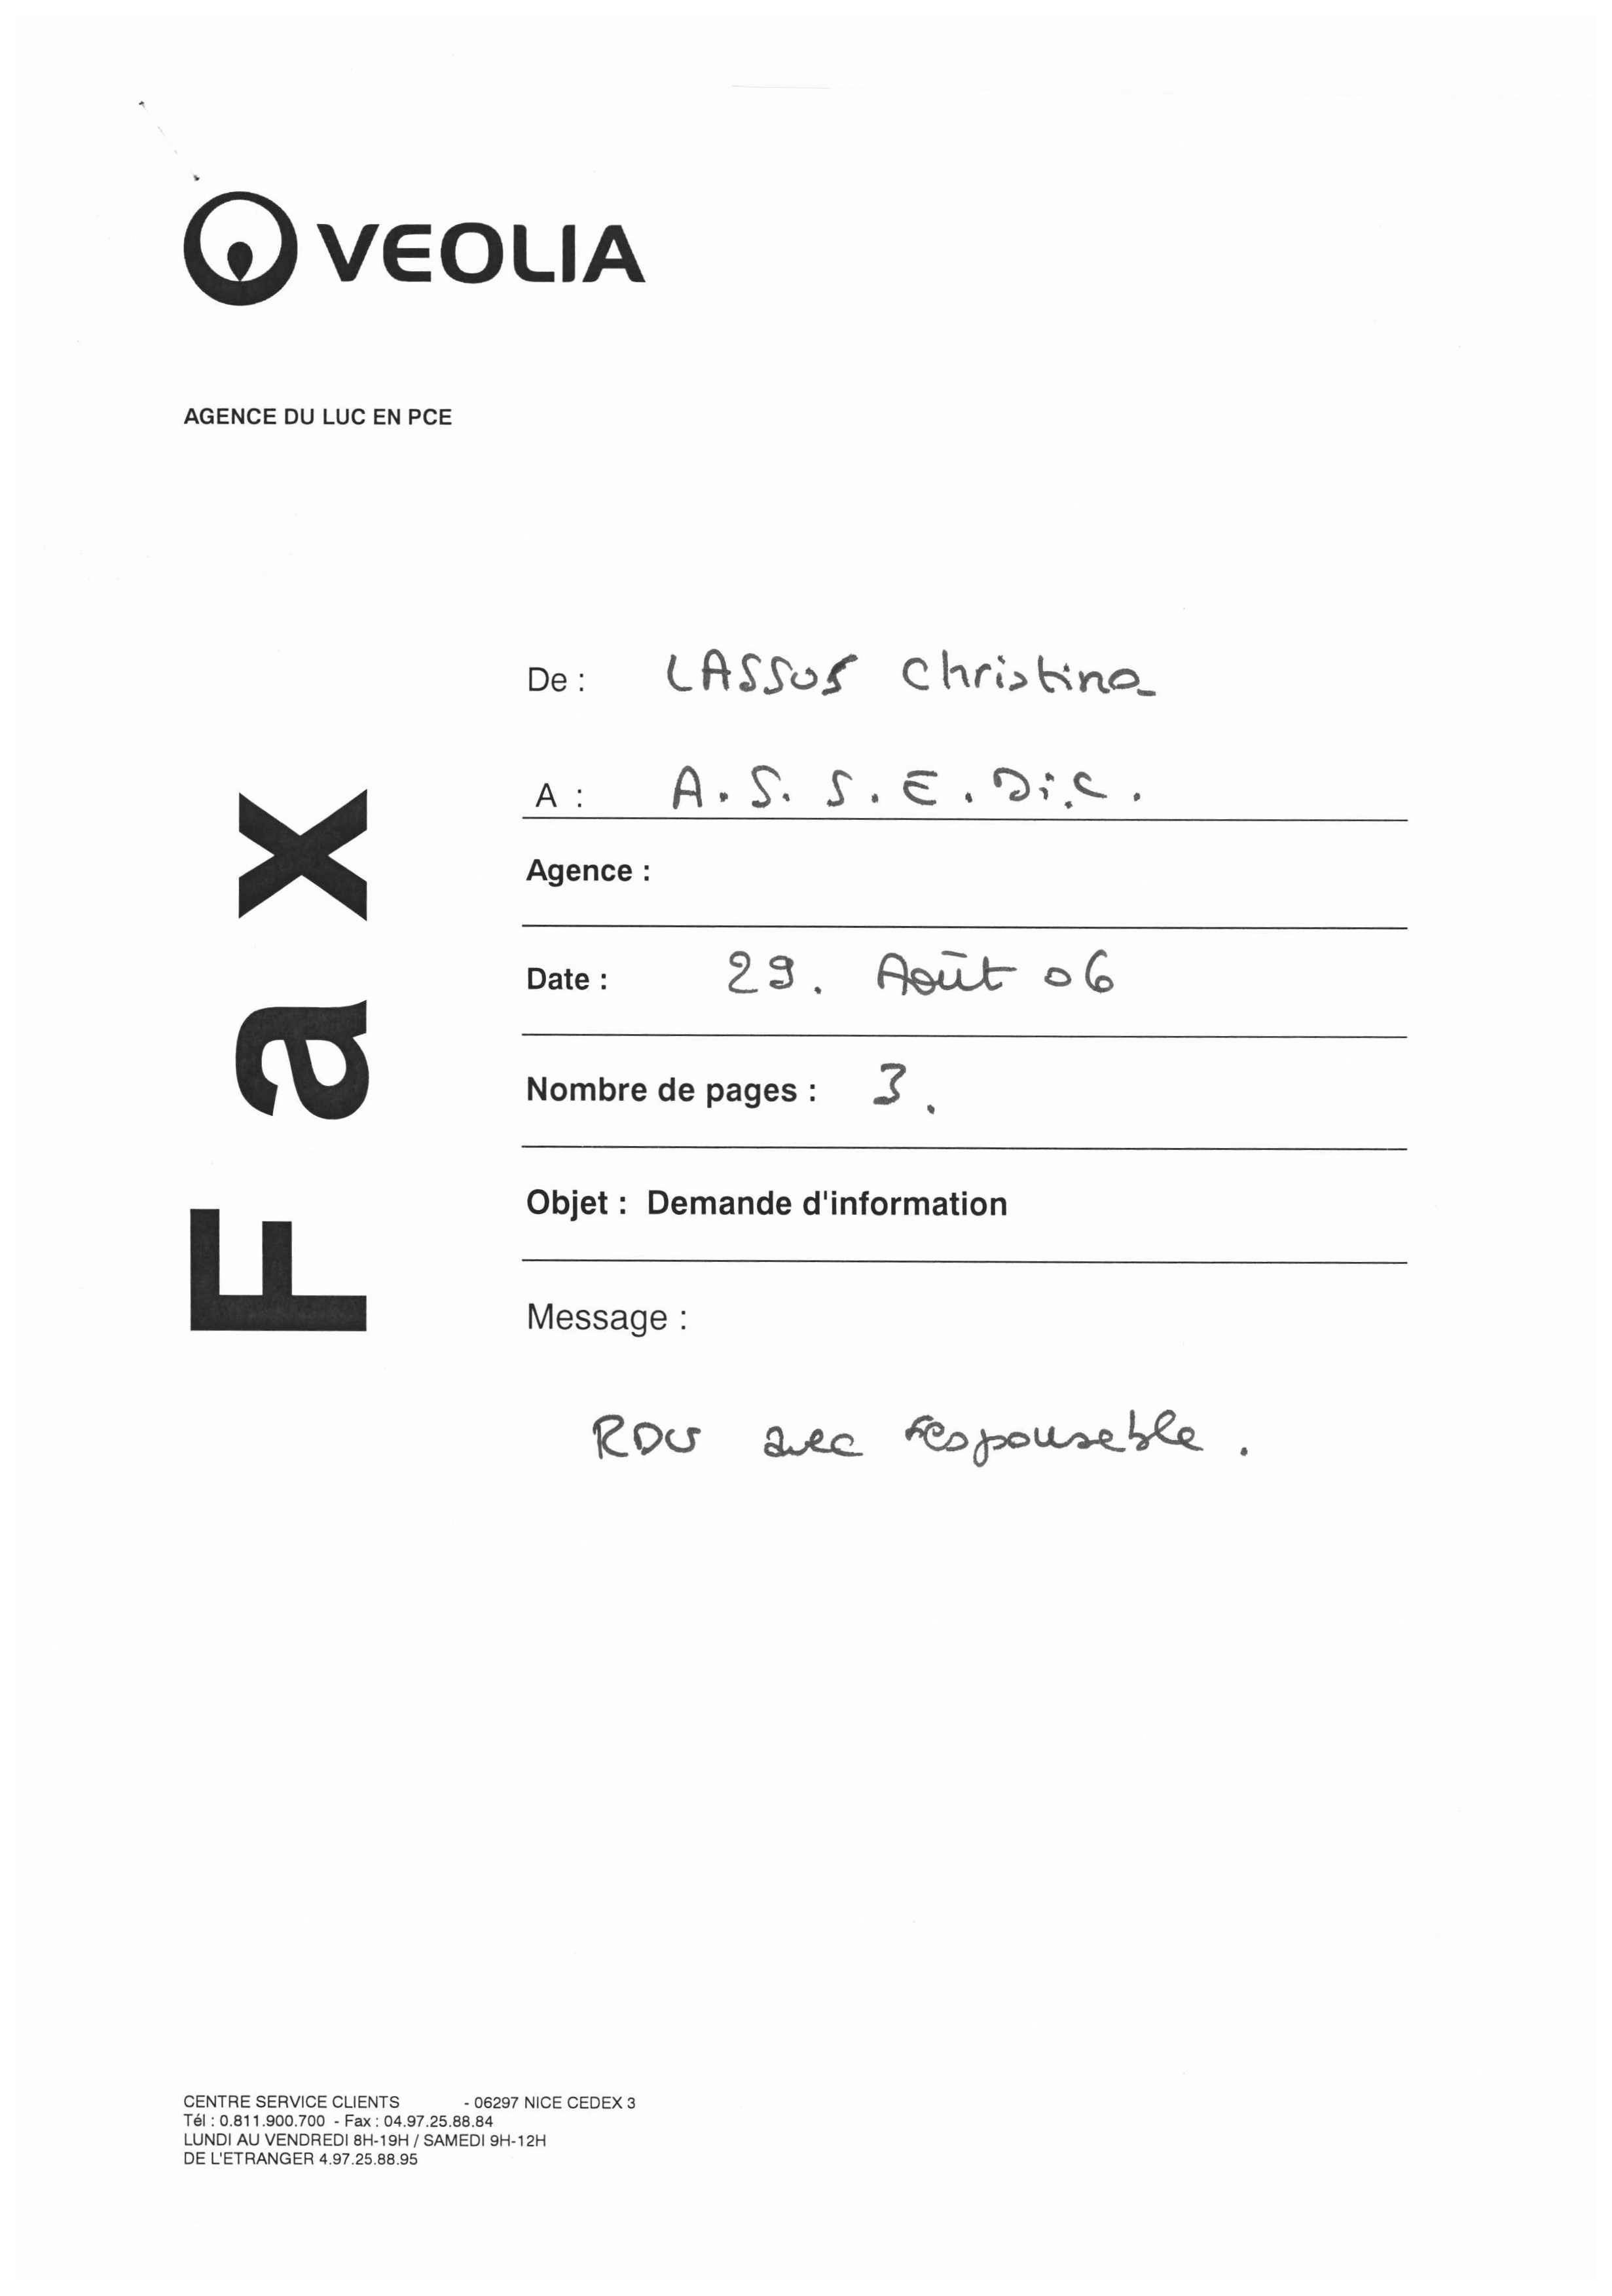 VEOLIA
AGENCE DU LUC EN PCE
Fax
De : LASSUS Christina
A : A.S.S.E.Di.C.
Agence :
Date : 29. Août 06
Nombre de pages : 3.
Objet : Demande d'information
Message :
RDV avec responsable.
CENTRE SERVICE CLIENTS - 06297 NICE CEDEX 3
Tél : 0.811.900.700 - Fax : 04.97.25.88.84
LUNDI AU VENDREDI 8H-19H / SAMEDI 9H-12H
DE L'ETRANGER 4.97.25.88.95